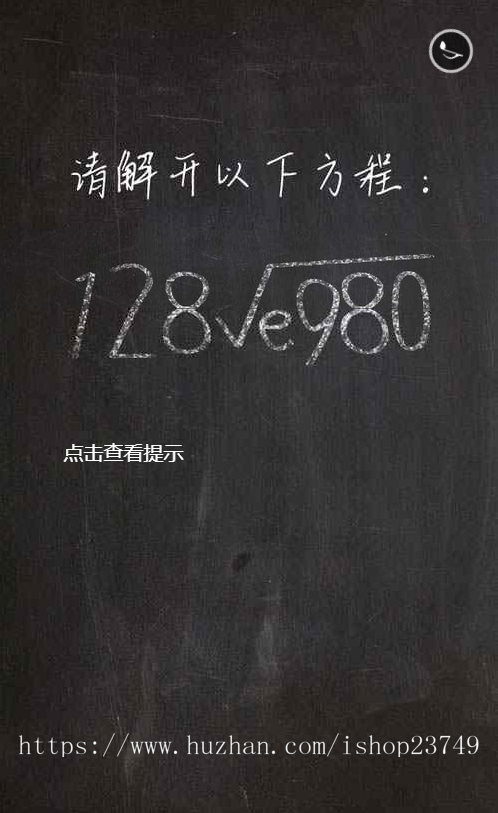 请解开以下方程：
128√e980
点击查看提示
https://www.huzhan.com/ishop23749